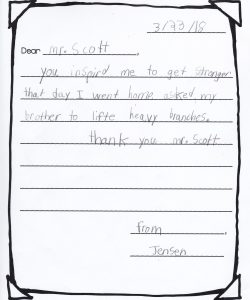 3/23/18
Dear mr. Scott,
you inspird me to get stronger
that day I went home asked my
brother to lifte heavy branches.
thank you mr. Scott
from,
Jensen